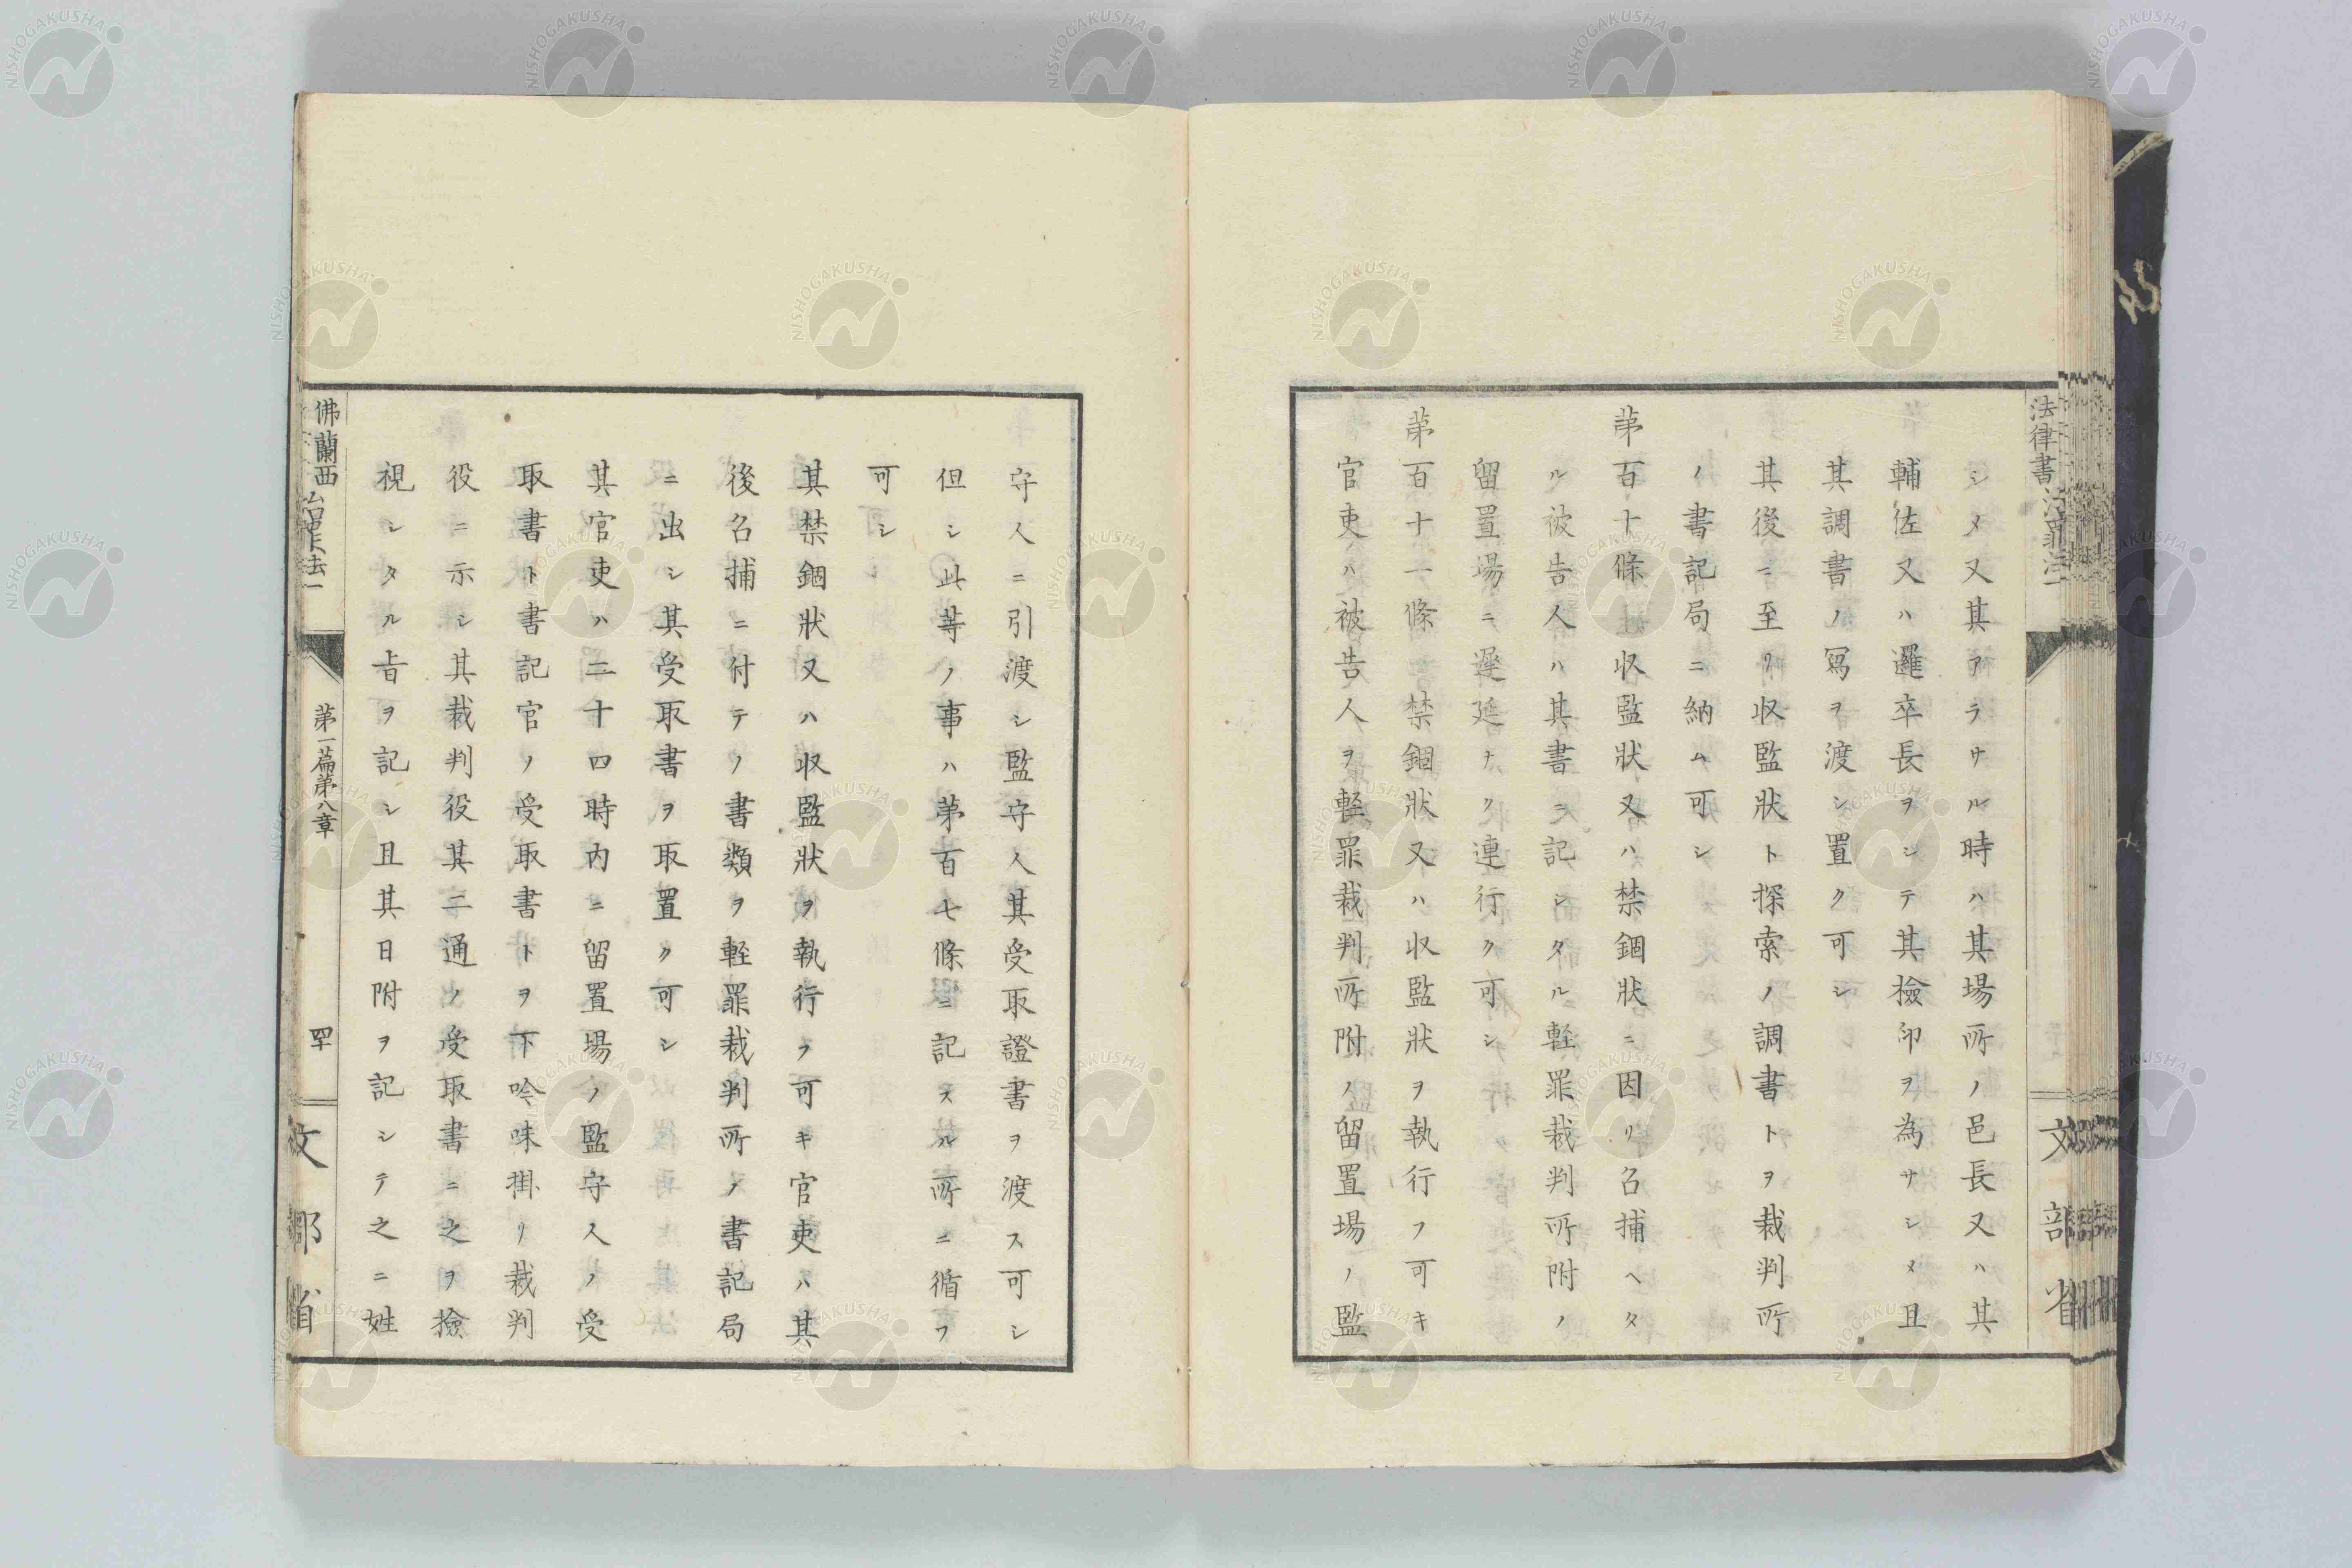 法律書治罪法一
シメ又其アラサル時ハ其場所ノ邑長又ハ其
輔佐又ハ邏卒長ヲシテ其檢印ヲ為サシメ且
其調書ノ冩ヲ渡シ置ク可シ
其後ニ至リ収監狀ト探索ノ調書トヲ裁判所
ノ書記局ニ納ム可シ
苐百十條 収監狀又ハ禁錮狀ニ因リ召捕ヘタ
ル被告人ハ其書ニ記シタル軽罪裁判所附ノ
留置場ニ遲延ナク連行ク可シ
苐百十一條 禁錮狀又ハ収監狀ヲ執行フ可キ
官吏ハ被告人ヲ軽罪裁判所附ノ留置場ノ監
文部省
守人ニ引渡シ監守人其受取證書ヲ渡ス可シ
但シ此等ノ事ハ苐百七條ニ記スル所ニ循フ
可シ
其禁錮狀又ハ収監狀ヲ執行フ可キ官吏ハ其
後召捕ニ付テノ書類ヲ軽罪裁判所ノ書記局
ニ出シ其受取書ヲ取置ク可シ
其官吏ハ二十四時内ニ留置場ノ監守人ノ受
取書ト書記官ノ受取書トヲ下吟味掛リ裁判
役ニ示シ其裁判役其二通ノ受取書ニ之ヲ檢
視シタル旨ヲ記シ且其日附ヲ記シテ之ニ姓
佛蘭西治罪法一
苐一篇苐八章
文部省
NISHOGAKUSHA